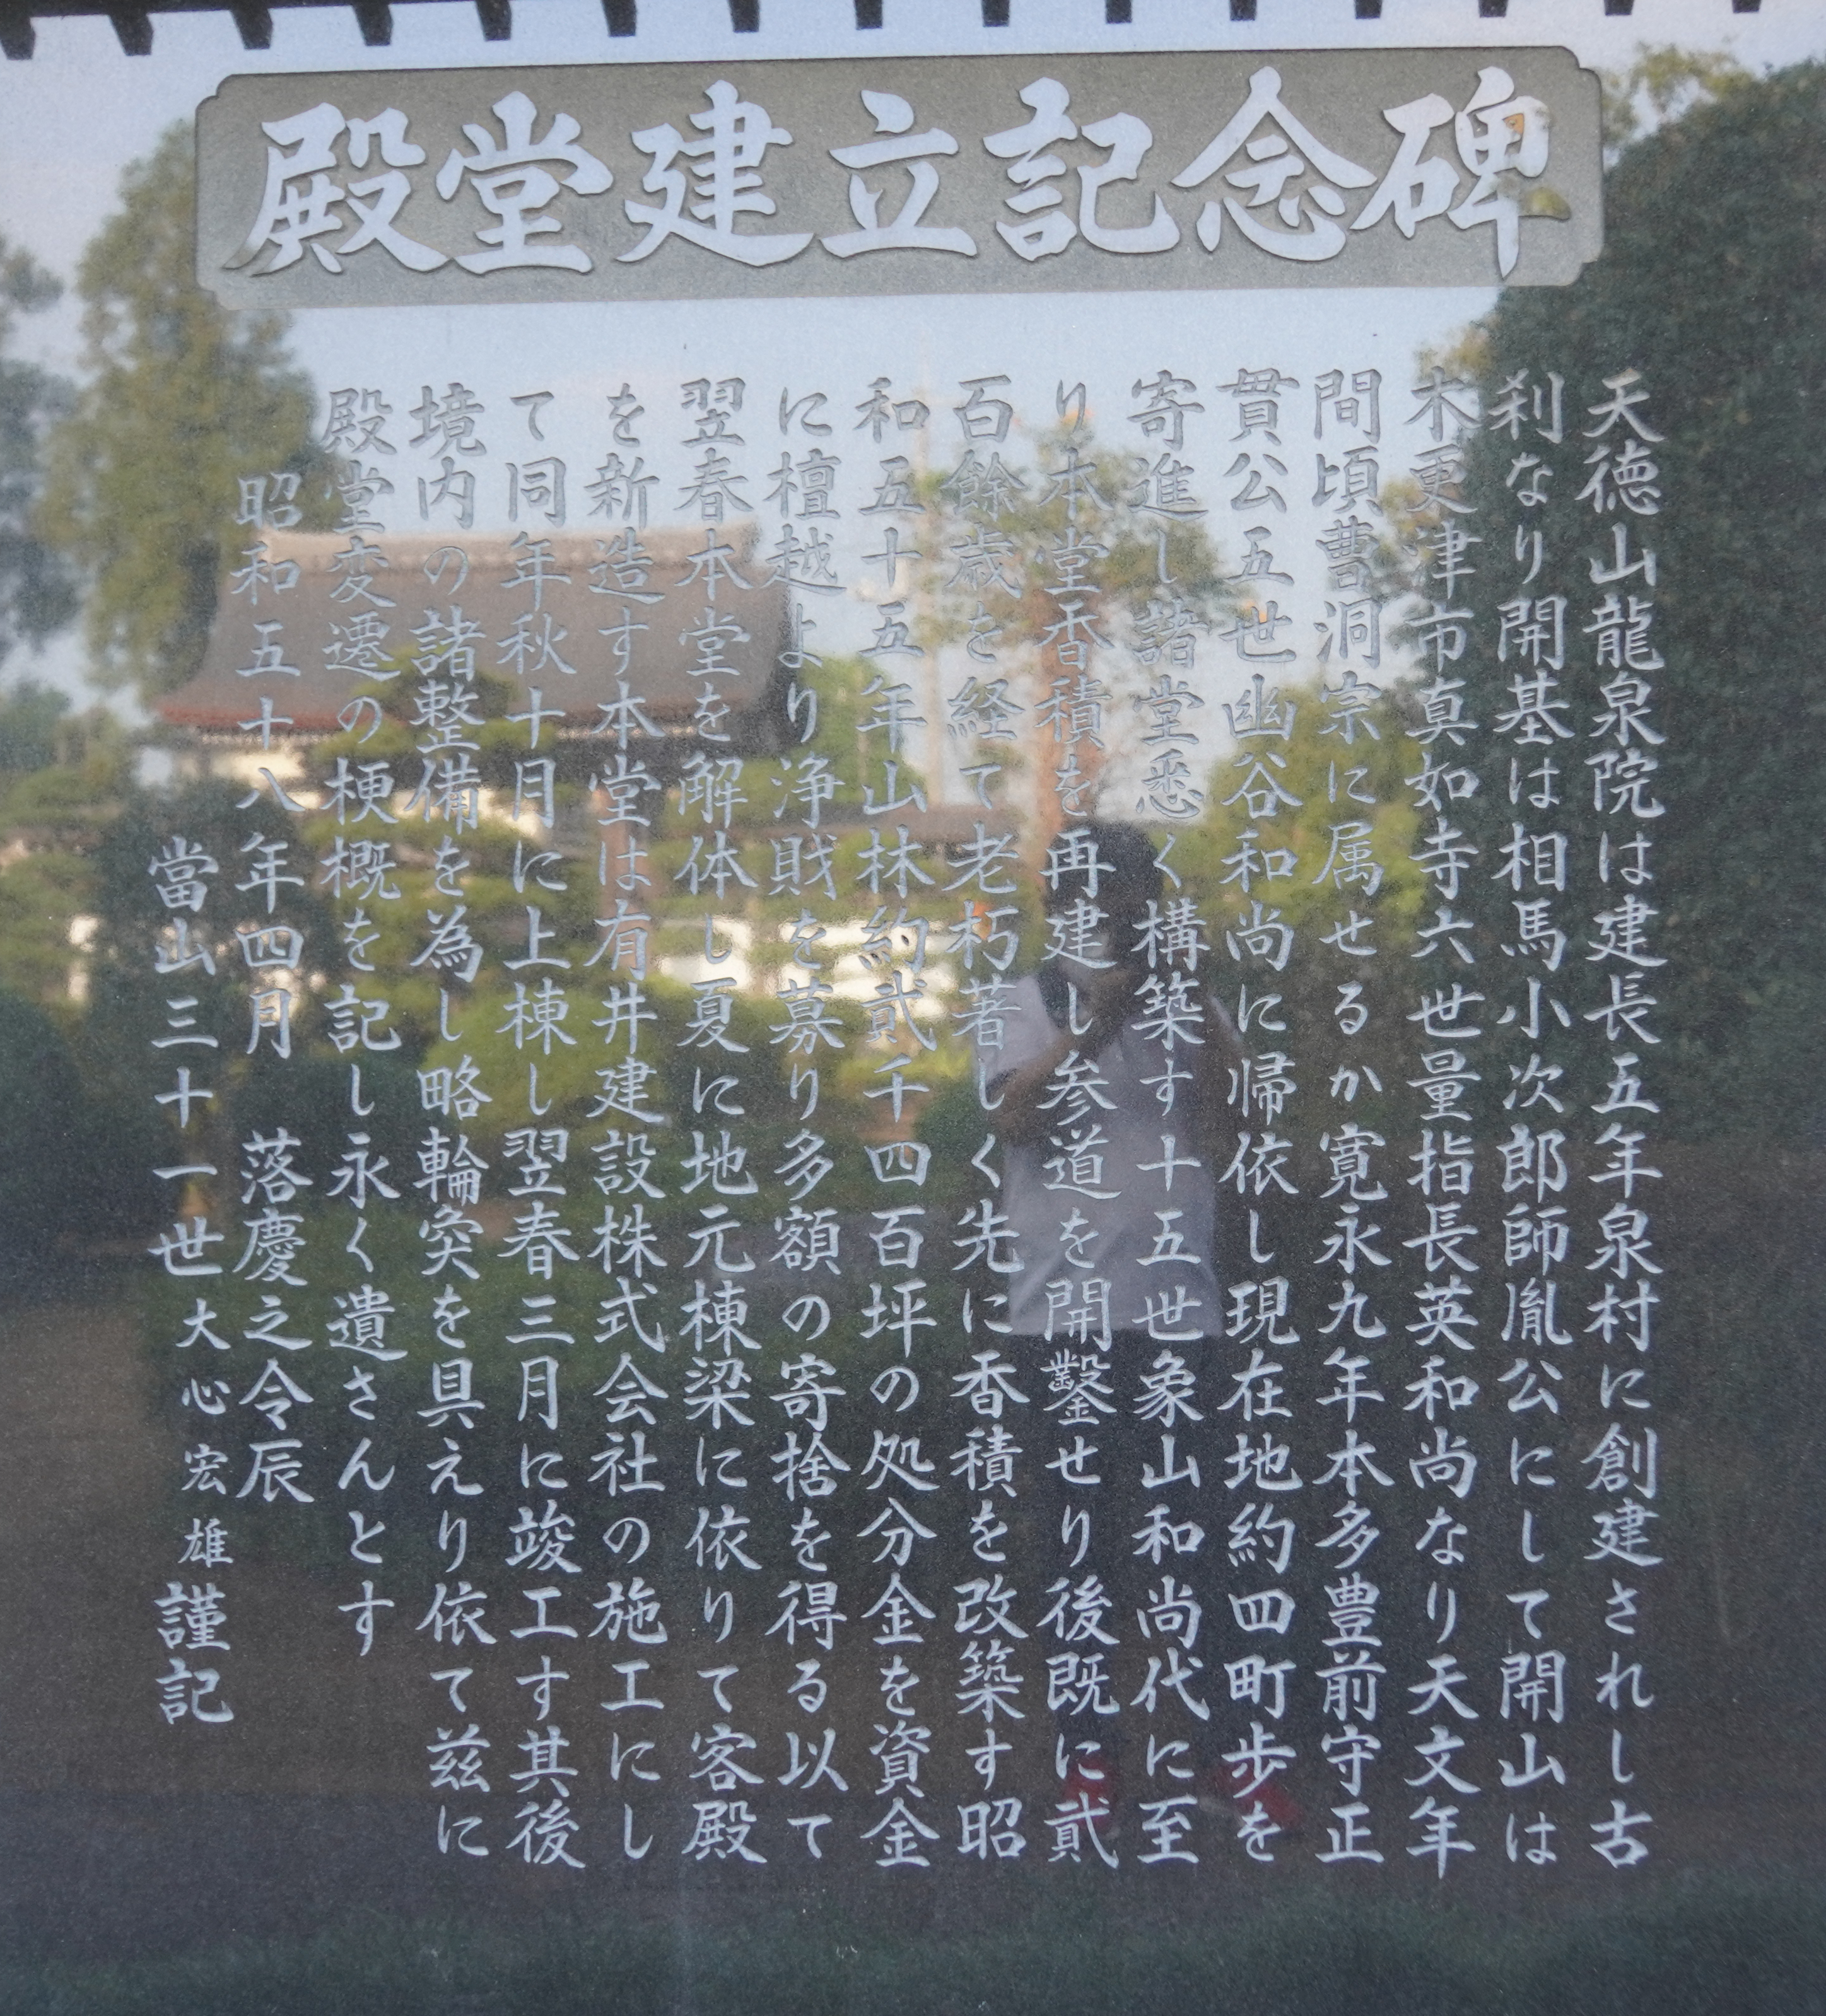 殿堂建立記念碑
天徳山龍泉院は建長五年泉村に創建されし古
刹なり開基は相馬小次郎師胤公にして開山は
木更津市真如寺六世量指長英和尚なり天文年
間頃曹洞宗に属せるか寛永九年本多豊前守正
貫公五世幽谷和尚に帰依し現在地約四町歩を
寄進し諸堂悉く構築す十五世象山和尚代に至
り本堂香積を再建し参道を開鑿せり後既に貮
百餘歳を経て老朽著しく先に香積を改築す昭
和五十五年山林約貮千四百坪の処分金を資金
に檀越より浄財を募り多額の寄捨を得る以て
翌春本堂を解体し夏に地元棟梁に依りて客殿
を新造す本堂は有井建設株式会社の施工にし
て同年秋十月に上棟し翌春三月に竣工す其後
境内の諸整備を為し略輪奐を具えり依て茲に
殿堂変遷の梗概を記し永く遺さんとす
昭和五十八年四月　落慶之令辰
當山三十一世大心宏雄謹記